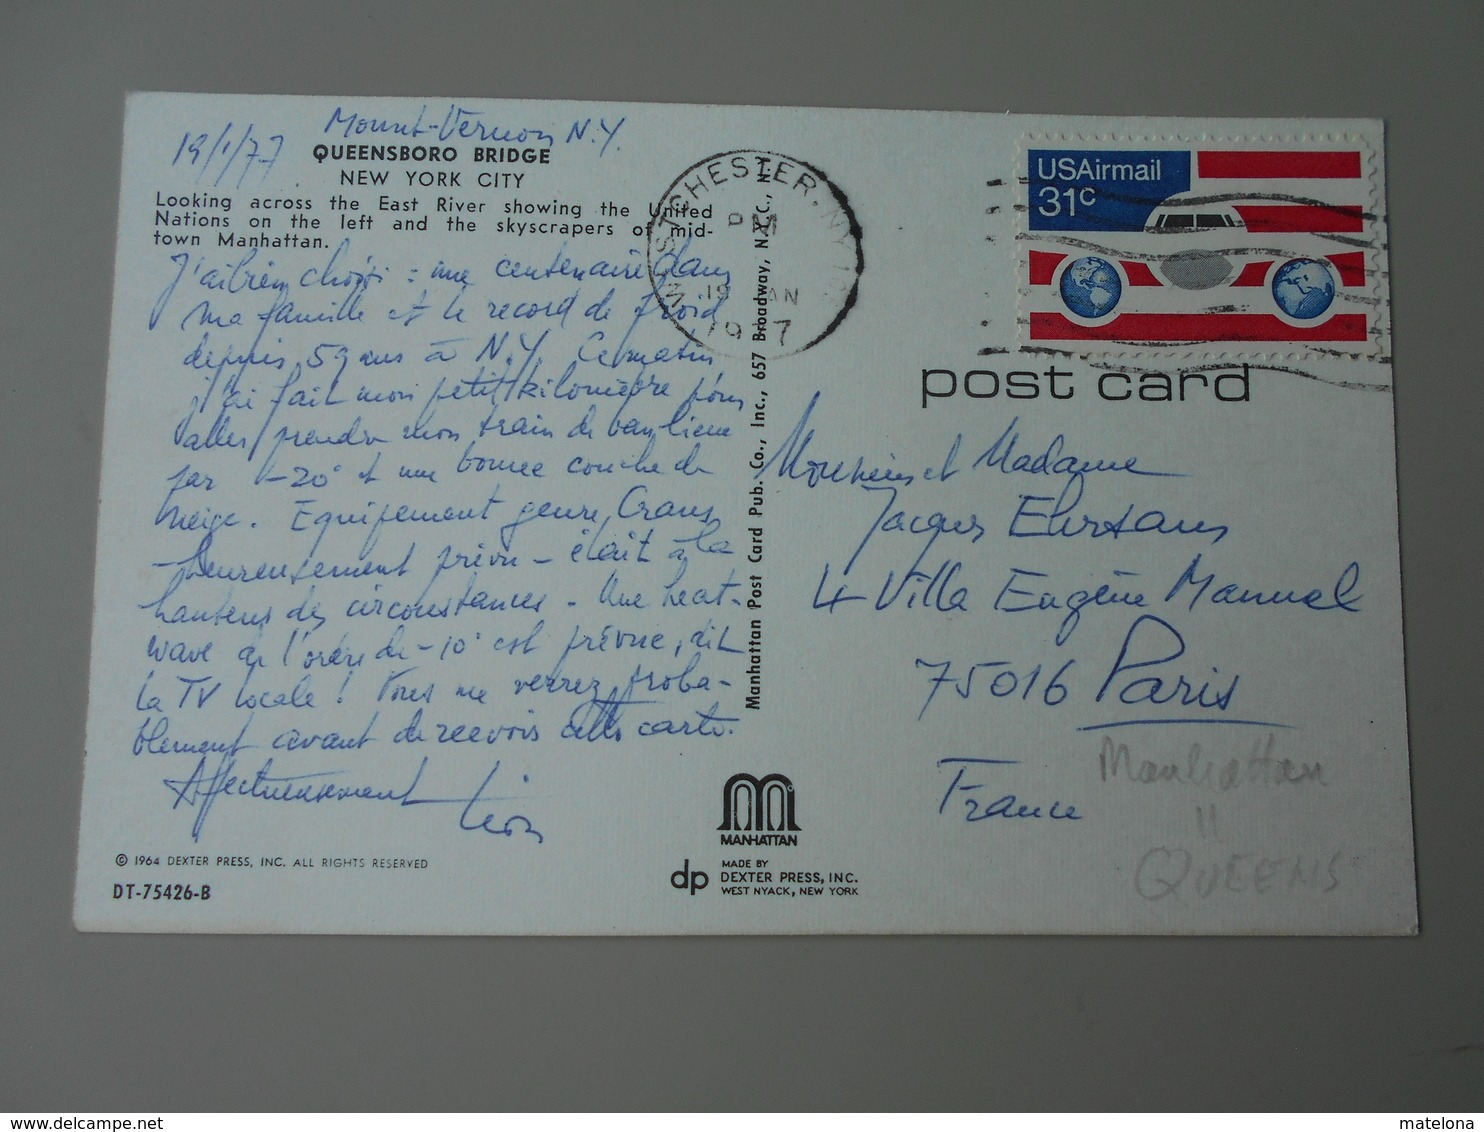 19/1/77
Mount-Vernon N.Y.
QUEENSBORO BRIDGE
NEW YORK CITY
Looking across the East River showing the United
Nations on the left and the skyscrapers of mid-
town Manhattan.
J'ai bien choisi : une centenaire dans
ma famille et le record de froid
depuis 59 ans à N.Y. Ce matin
j'ai fait mon petit kilomètre pour
aller prendre mon train de banlieue
par -20° et une bonne couche de
neige. Equipement genre Crans
- heureusement prévu - était à la
hauteur des circonstances. Une heat-
wave de l'ordre de -10° est prévue, dit
la TV locale ! Vous me verrez proba-
blement avant de recevoir cette carte.
Affectueusement Léon
© 1964 DEXTER PRESS, INC. ALL RIGHTS RESERVED
DT-75426-B
Manhattan Post Card Pub. Co., Inc., 657 Broadway, N.Y.C., N.Y.
MANHATTAN
dp
MADE BY
DEXTER PRESS, INC.
WEST NYACK, NEW YORK
WESTCHESTER, NY
PM
19
1977
USAirmail
31c
post card
Monsieur et Madame
Jacques
4 Villa Eugène Manuel
75016 Paris
France
Manhattan
11
QUEENS
delcampe.net
matelona